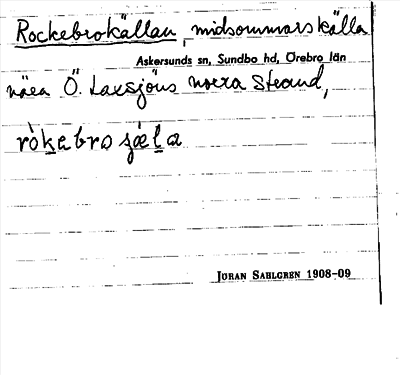 Rockebrokällan, midsommarskälla
Askersunds sn, Sundbo hd, Örebro län
nära Ö. Laxsjöns norra strand,
ròkebro ɟæla
JÖRAN SAHLGREN 1908-09